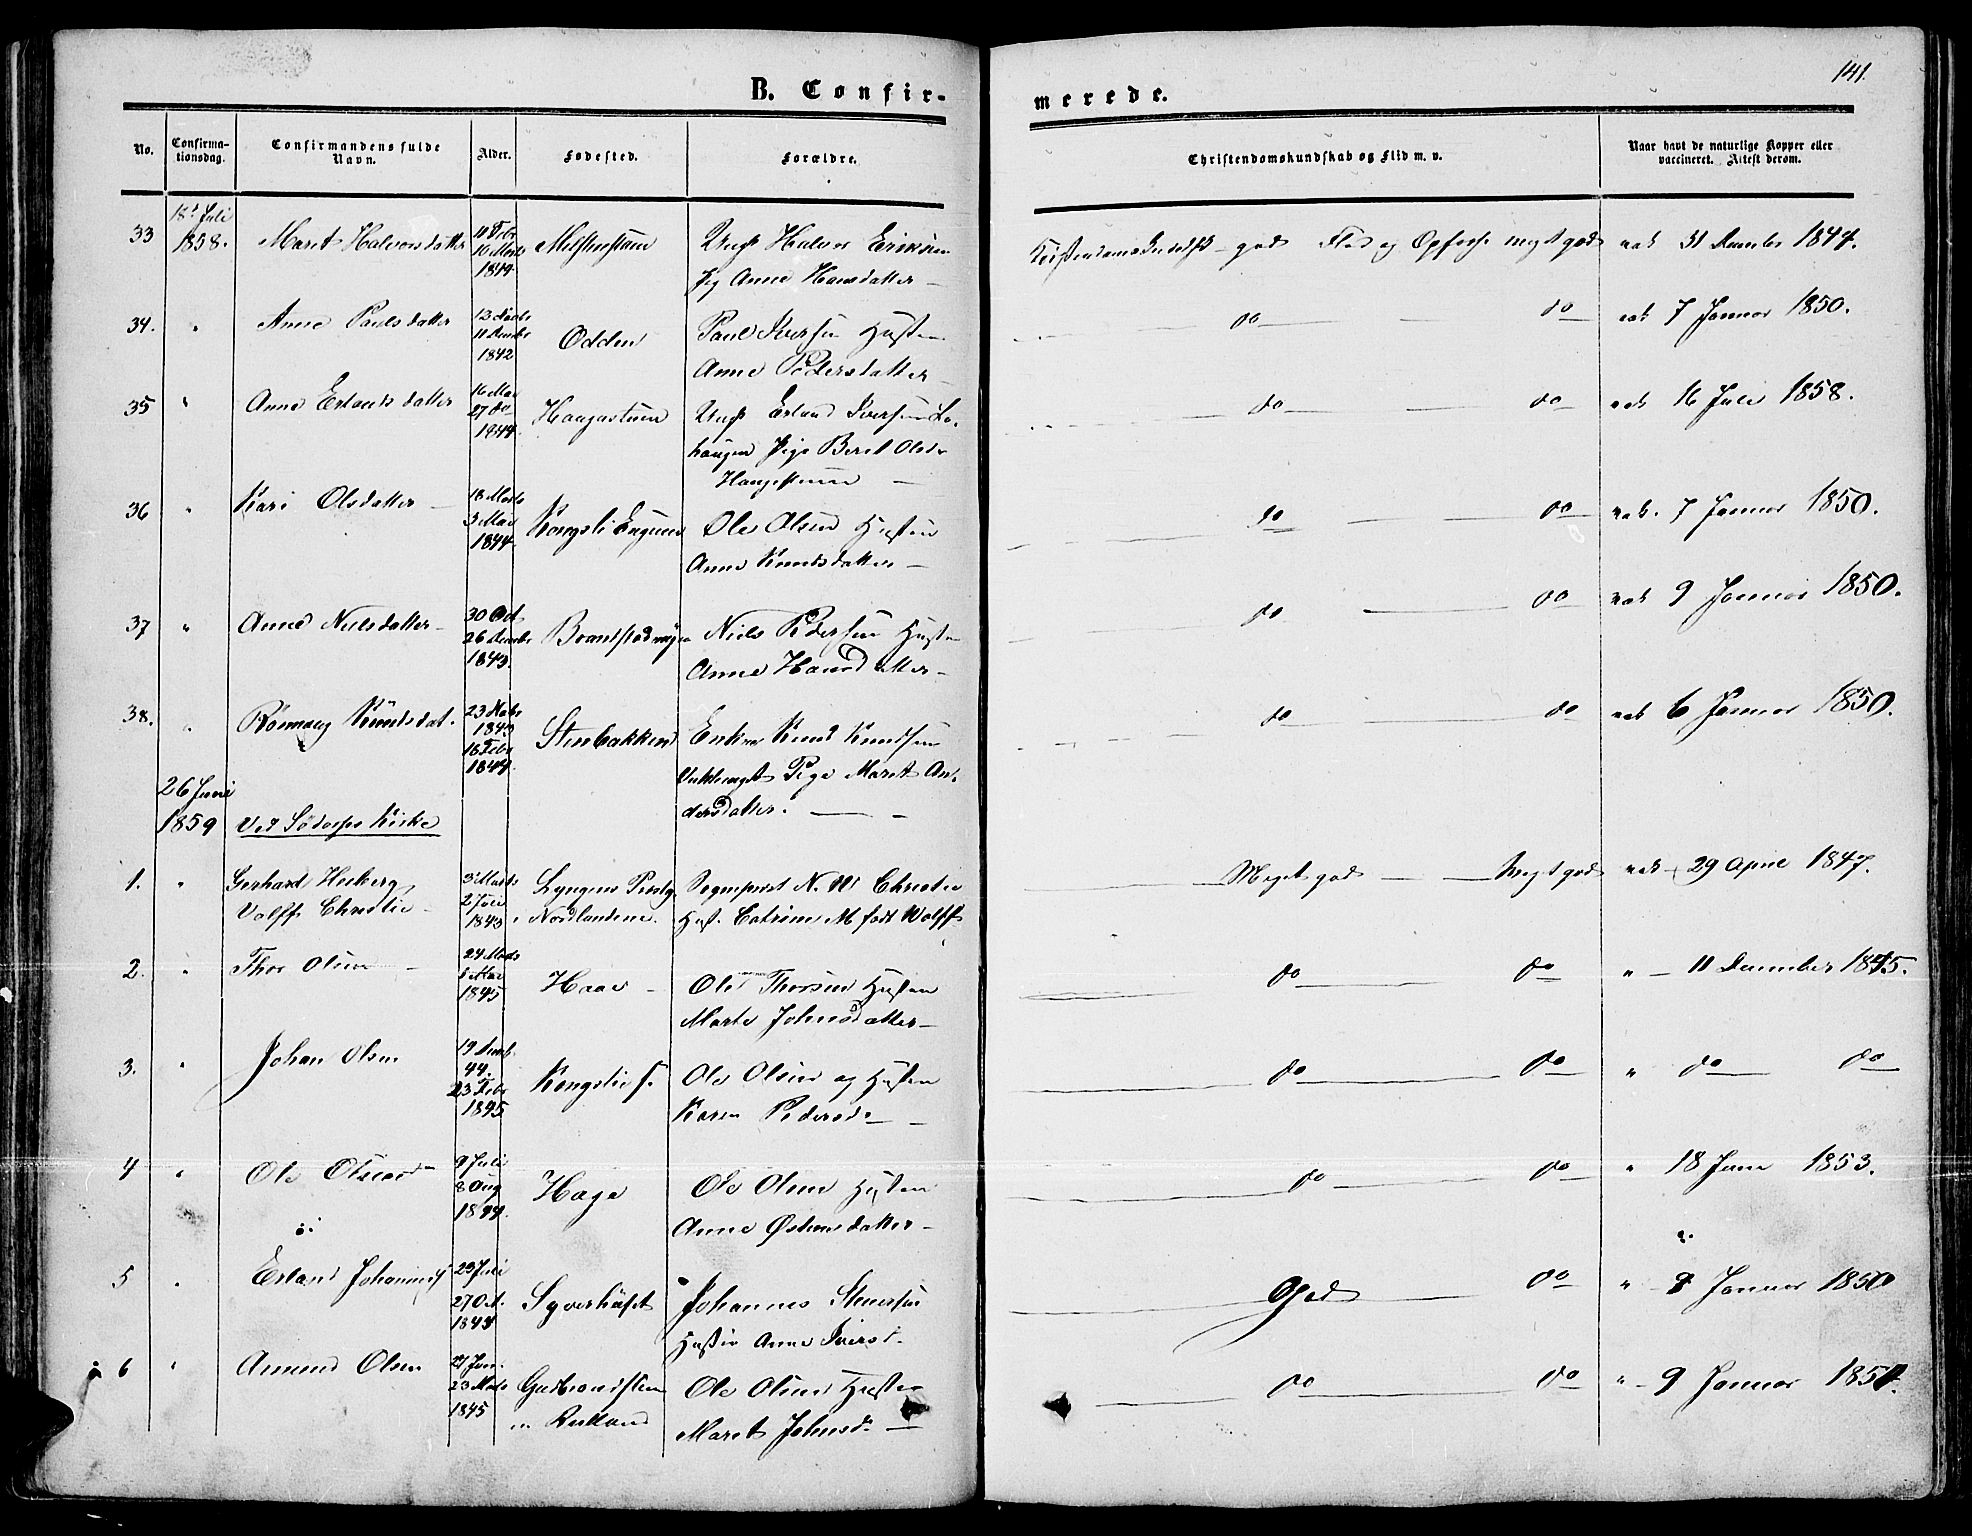 141.
B. Confir-
merede.
No.
Confirma-
tionsdag.
Confirmandens fulde
Navn.
Alder.
Fødested.
Forældre.
Christendomskundskab og Flid m. v.
Naar havt de naturlige Kopper eller
vaccineret. Attest derom.
18de Juli
33 1858. Marit Halvorsdatter
1844
Ungk Halvor Eriksen
Pig Anne Hansdatter
Kristendomskundsk god Flid og Opførse megt god vak 31 December 1844.
34. " Anne Paulsdatter
1842
Odden
Paul Iversen Hustru
Anne Pedersdatter
do do vak 7 Januar 1850.
35 " Anne Erlandsdatter
16 Mai
27 do
1844
Haugastuen
Ungk Erland Iversen
haugen Pige Berit Olsdr
Haugestuen
do do vak 16 Juli 1858.
36 " Kari Olsdatter
18 Marts
3 Mai
1844
Kongsli Engene
Ole Olsen Hustru
Anne Knudsdatter
do do vak. 7 Januar 1850.
37 " Anne Nielsdatter
30 Oct
26 Decembr
1843.
Niels Pedersen Hustru
Anne Hansdatter
do do vak 9 Januar 1850.
38. " Rønnaug Knudsdat.
23
1843
16 Febr
1844.
Stenbakken
Enkem Knud Knudsen
Pige Marit An-
dersdatter.
do do vak 6 Januar 1850.
26 Juni
1859 Ved Sødorps Kirke
1. " Gerhard Heiberg
Volff Christie
3 Marts
2
1843
Lyngens Prstg
Nordlandene.
Sognepræst N. W Christie
Hust. Catrine M født Wolff
Meget god Megt god vak 29 April 1847.
2. " Thor Olsen
24 Marts
Mai
1845
Haave
Ole Thorsen Hustru
Marte Johnsdatter
do do " 11 December 1845.
3. " Johan Olsen
19 Decb.
44.
23 Febr
1845
Kongslie
Ole Olsen og Hustru
Karen Pedersd
do do " do do
4 " Ole Olsen
9 Juli
8 Aug
1844.
Hage
Ole Olsen Hustru
Anne Østensdatter
do do " 18 Juni 1853.
5 " Erland Johannes
23 Juli
27 Oct.
184
Syverhuset
Johannes Stenersen
Hustru Anne Iversd.
God do " 8 Januar 1850
6 " Amund Olsen
Jan.
23 Marts
1845
Gudbrandsstuen
Ole Olsen Hustru
Marit Johnsd
do do " 9 Januar 185